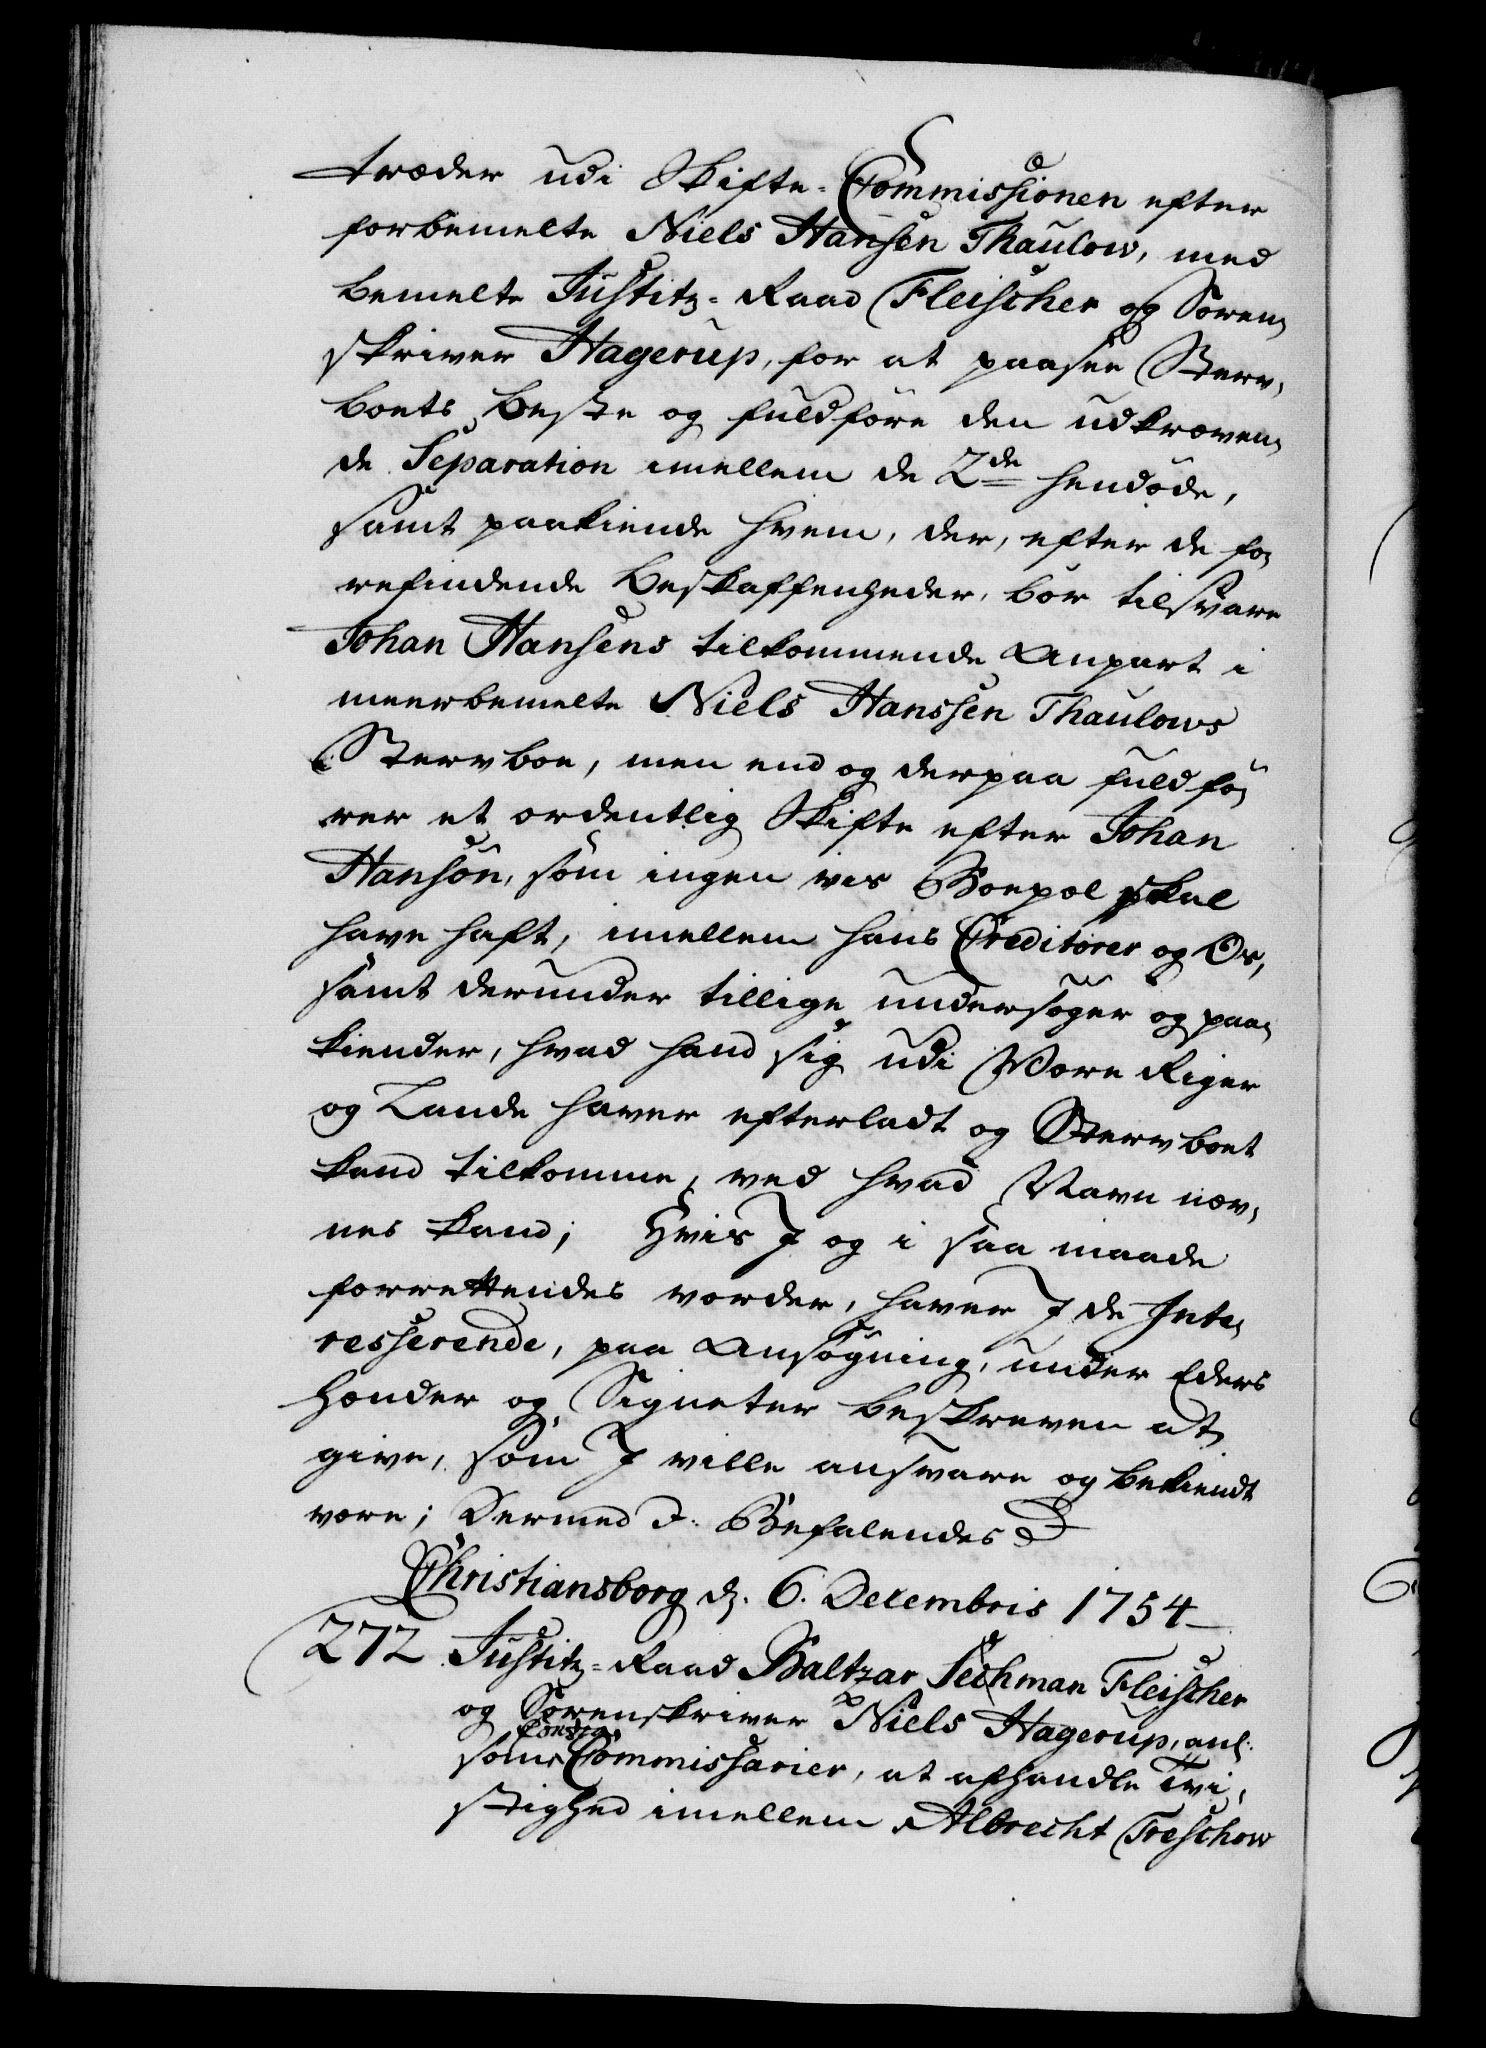 træder udi Skifte-Commissionen efter
forbemelte Niels Hansen Thaulow, med
bemelte Justitz-Raad Fleischer og Soren,
skriver Hagerup, for at paasee Sterv,
boets Beste og fuldföre den udkræven,
de Separation imellem de 2de hendöde,
samt paakiende hvem, der, efter de fo,
refindende Beskaffenheder, bör tilsvare
Johan Hansens tilkommende Anpart i
meerbemelte Niels Hanssen Thaulows
Stervboe, men end og derpaa fuldfö,
rer et ordentlig Skifte efter Johan
Hansön, som ingen vis Boepæl skal
have haft, imellem hans Creditorer og Os,
samt derunder tillige undersöger og paa,
kiender, hvad hand sig udi Vore Riger
og Lande haver efterladt og Stervboet
kand tilkomme, ved hvad Navn næv,
nes kand; Hvis I og i saa maade
forrettendes vorder, haver I de Inte,
resserende, paa Ansögning, under Eders
Hænder og Signeter beskreven at
give, som I ville ansvare og bekiendt
være; Dermed p. Befalendes p
Christiansborg d. 6. Decembris 1754
272 Justitz-Raad Baltzar Sechman Fleischer
og Sorenskriver Niels Hagerup, anl.
Constit.
som Commissarier, at afhandle Tvi,
stighed imellem Albrecht Treschow